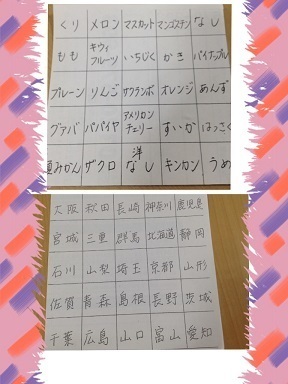 くり メロン マスカット マンゴスチン なし
もも キウィフルーツ いちじく かき パイナップル
プルーン りんご サクランボ オレンジ あんず
グァバ パパイヤ アメリカンチェリー すいか はっさく
夏みかん ザクロ 洋なし キンカン うめ
大阪 秋田 長崎 神奈川 鹿児島
宮城 三重 群馬 北海道 静岡
石川 山梨 埼玉 京都 山形
佐賀 青森 島根 長野 茨城
千葉 広島 山口 富山 愛知